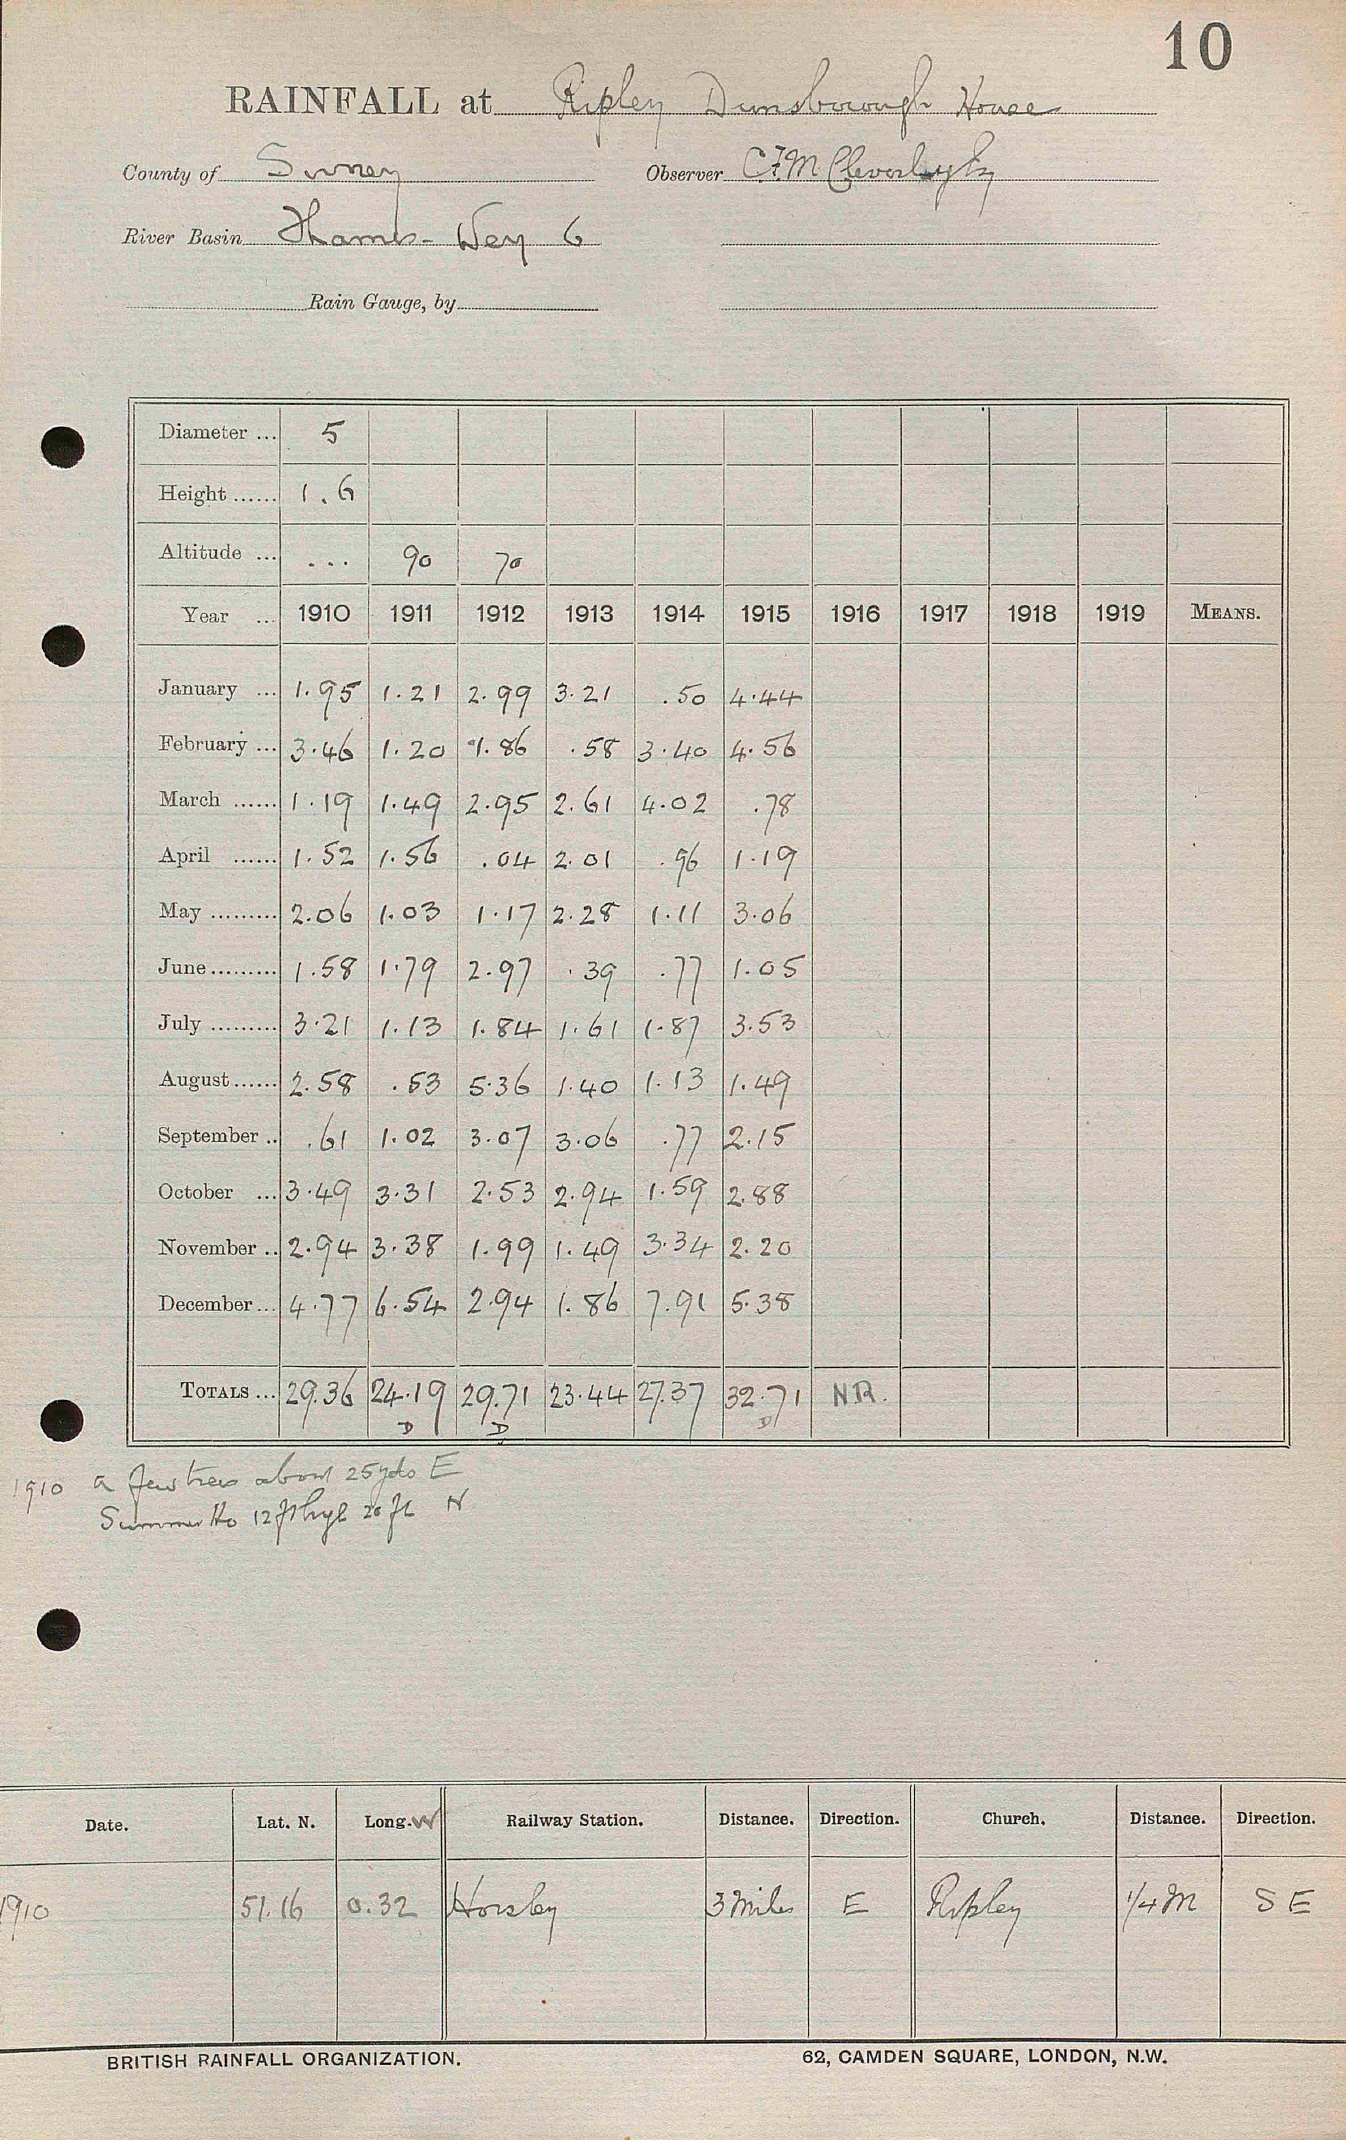 10
RAINFALL at Ripley Dunsborough House
County of Surrey Observer C F M
River Basin Thames - Wey 6
Rain Gauge, by
Diameter ... 5
Height ...... 1.6
Altitude ... ... 90 70
Year ... 1910 1911 1912 1913 1914 1915 1916 1917 1918 1919 MEANS.
January ... 1.95 1.21 2.99 3.21 .50 4.44
February ... 3.46 1.20 1.86 .58 3.40 4.56
March ...... 1.19 1.49 2.95 2.61 4.02 .78
April ...... 1.52 1.56 .04 2.01 .96 1.19
May ......... 2.06 1.03 1.17 2.28 1.11 3.06
June ......... 1.58 1.79 2.97 .39 .77 1.05
July ......... 3.21 1.13 1.84 1.61 1.87 3.53
August ...... 2.58 .53 5.36 1.40 1.13 1.49
September .. .61 1.02 3.07 3.06 .77 2.15
October ... 3.49 3.31 2.53 2.94 1.59 2.88
November .. 2.94 3.38 1.99 1.49 3.34 2.20
December ... 4.77 6.54 2.94 1.86 7.91 5.38
TOTALS ... 29.36 24.19 29.71 23.44 27.37 32.71 N.R.
D D D
1910 a few trees about 25 yds E
Summer Ho 12 ft high 20 ft N
Date. Lat. N. Long. W Railway Station. Distance. Direction. Church. Distance. Direction.
1910 51.16 0.32 Horsley 3 Miles E Ripley 1/4 M S E
BRITISH RAINFALL ORGANIZATION. 62, CAMDEN SQUARE, LONDON, N.W.